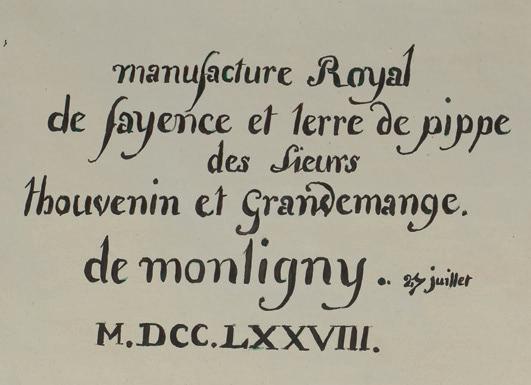 manufacture Royal
de fayence et terre de pippe
des Sieurs
thouvenin et Grandemange.
de montigny .. 27 juillet
M.DCC.LXXVIII.